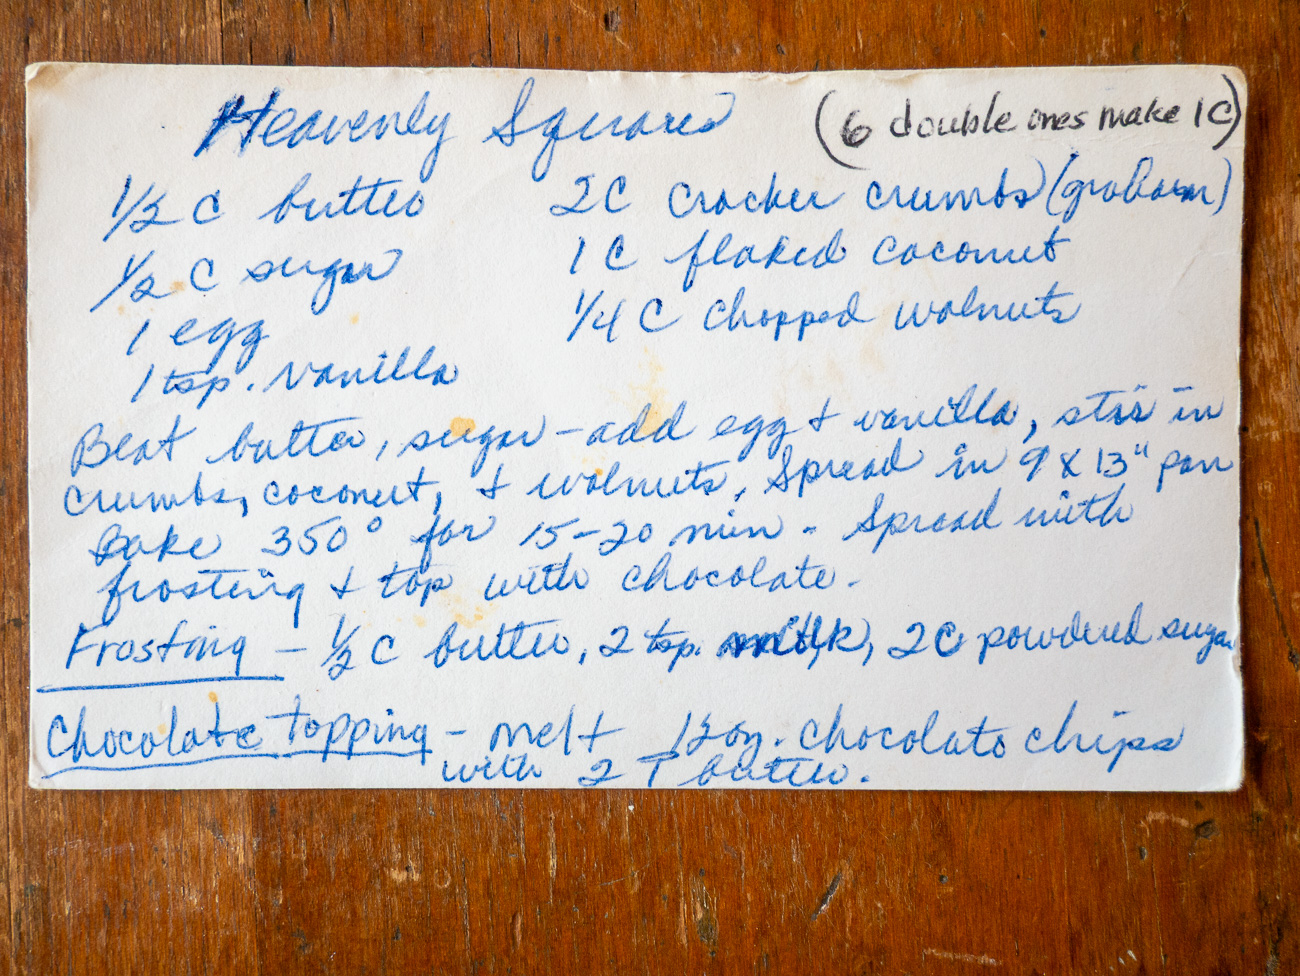 Heavenly Squares (6 double ones make 1C)
1/2 C butter 2C cracker crumbs (graham)
1/2 C sugar 1 C flaked coconut
1 egg 1/4 C chopped walnuts
1 tsp. vanilla
Beat butter, sugar - add egg + vanilla, stir in
crumbs, coconut, + walnuts. Spread in 9 X 13" pan
Bake 350° for 15-20 min - Spread with
frosting + top with chocolate.
Frosting - 1/2 C butter, 2 tsp. milk, 2C powdered sugar
Chocolate topping - melt 12 oz. chocolate chips
with 2 T butter.